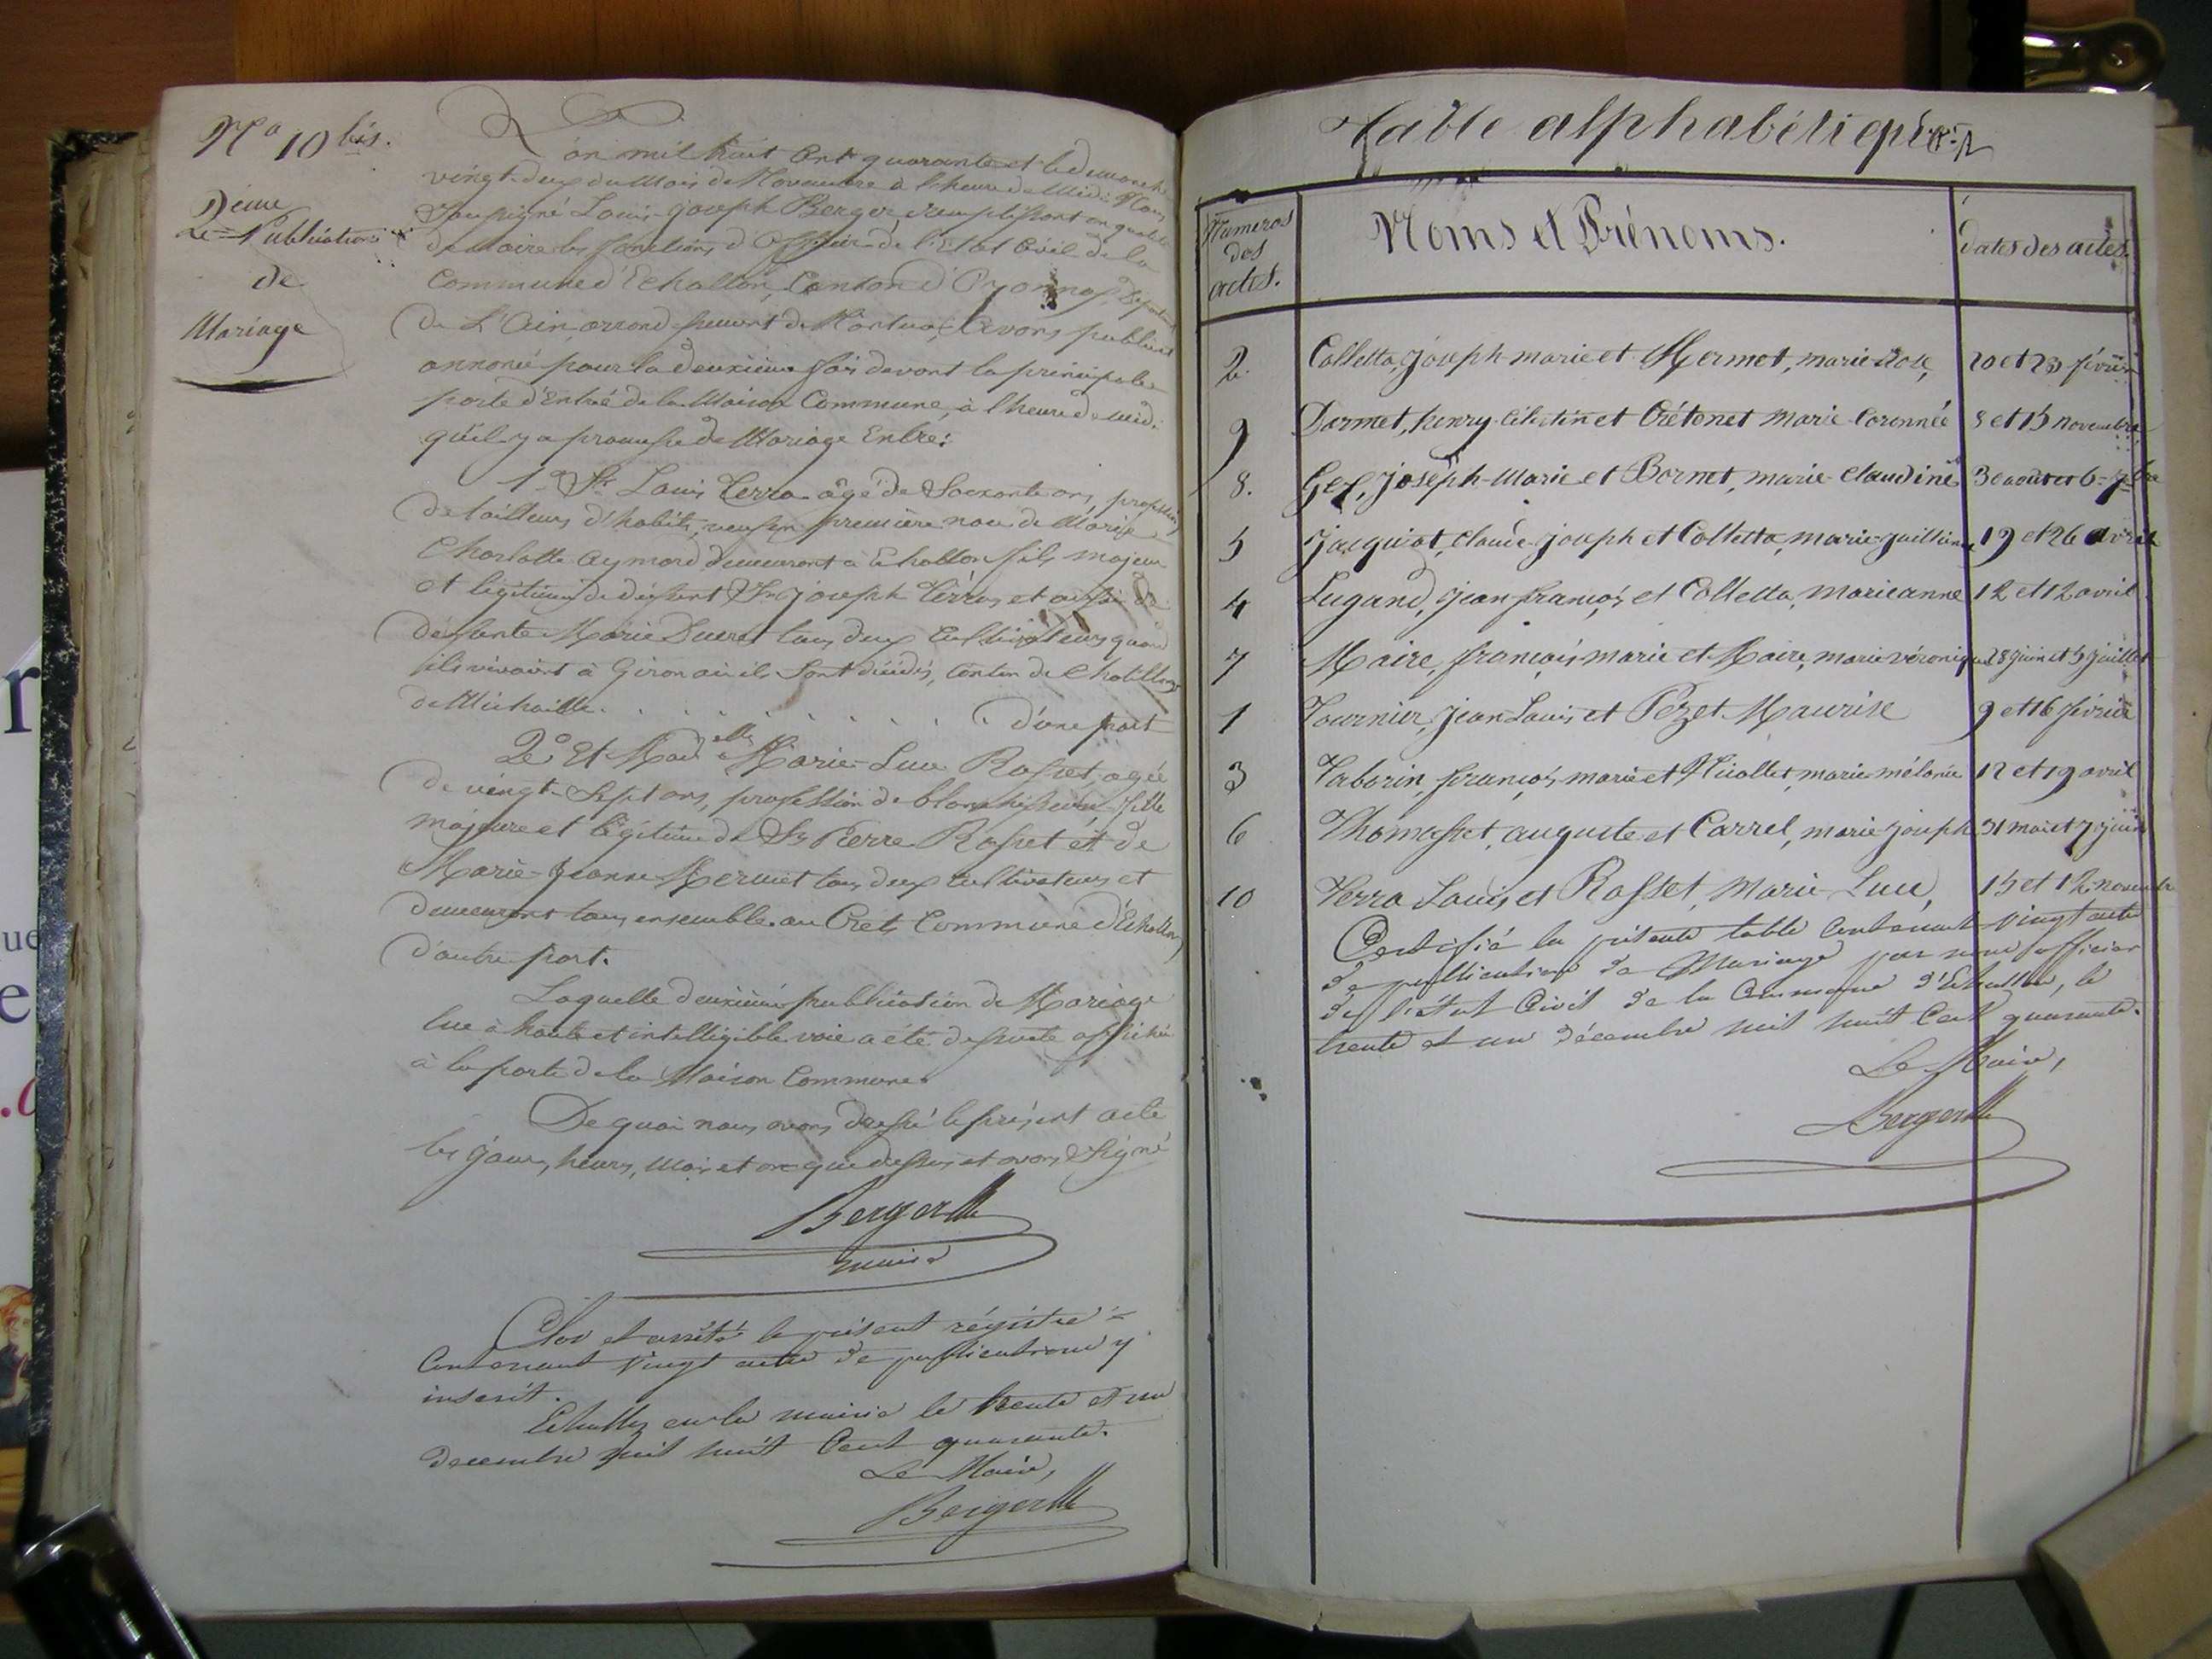 No 10 bis.
2eme
2e Publication
de
Mariage
L'an mil huit cent quarante et le dimanche
vingt-deux du Mois de Novembre à l'heure de Midi: Nous
Soussigné Louis-joseph Berger, remplissant en qualité
de Maire les fonctions d'Officier de l'Etat Civil de la
Commune d'Echallon, Canton d'Oyonnax,
De L'Ain, arrondissement de Nantua, avons publié et
annoncé pour la deuxième fois devant la principale
porte d'Entrée de la Maison Commune, à l'heure de midi
qu'il y a promesse de Mariage Entre:
1o Sr. Louis Verra âgé de Soixante ans, profession
de tailleur d'habits, veuf en première noce de Marie
Charlotte Aymard demeurant à Echallon fils majeur
et légitime de défunt Sr. joseph Verra, et aussi de
défunte Marie Ducret tous deux Cultivateurs quand
ils vivaient à Giron où ils Sont décédés, canton de Chatillon
de Michaille. . . . . . . . . . D'une part
2o Et Madelle Marie-Luce Rosset, agée
de vingt-Sept ans, profession de blanchisseuse, fille
majeure et légitime de Sr. Pierre Rosset et de
Marie-Jeanne Mermet tous deux cultivateurs et
demeurant tous ensemble au Crêt, Commune d'Echallon,
D'autre part.
Laquelle deuxième publication de Mariage
lue à haute et intelligible voie a été de suite affichée
à la porte de la Maison Commune.
De quoi nous avons dressé le présent acte
les jour, heure, Mois et an que dessus et avons Signé
Berger
maire
Clos et arrêté le présent régistre
Contenant vingt actes de publications y
inscrit.
Echallon en la mairie le trente et un
décembre mil huit Cent quarante.
Le Maire,
Berger
Table alphabétique
Numeros
des
actes.
Noms et Prénoms.
dates des actes.
2. Colletta, joseph-marie et Mermet, marie-Rose, 20 et 23 février
9 Dormet, henry-Célestin et Crétenet Marie-Coronnée 8 et 15 novembre
8. Gex, joseph-Marie et Bornet, marie-Claudine 30 août et 6 7bre
5 Jacquiot, Claude-joseph et Colletta, marie-juillienne 19 et 26 avril
4 Lugand, jean-françois et Colletta, marieanne 12 et 12 avril
7 Maire, françois marie et Maire, marie véronique 28 juin et 5 juillet
1 Tournier, jean-Louis et Pezet Maurise 9 et 16 février
3 Taborin, françois, marie et Nicollet, marie-mélanie 12 et 19 avril
6 Thomasset, auguste et Carrel, marie joseph 31 mai et 7 juin
10 Verra Louis, et Rosset, Marie-Luce, 15 et 12 novembre
Certifié la présente table Contenant vingt actes
de publications de Mariage par nous officier
de l'état Civil de la Commune d'Echallon, le
trente et un décembre mil huit Cent quarante.
Le Maire,
Berger